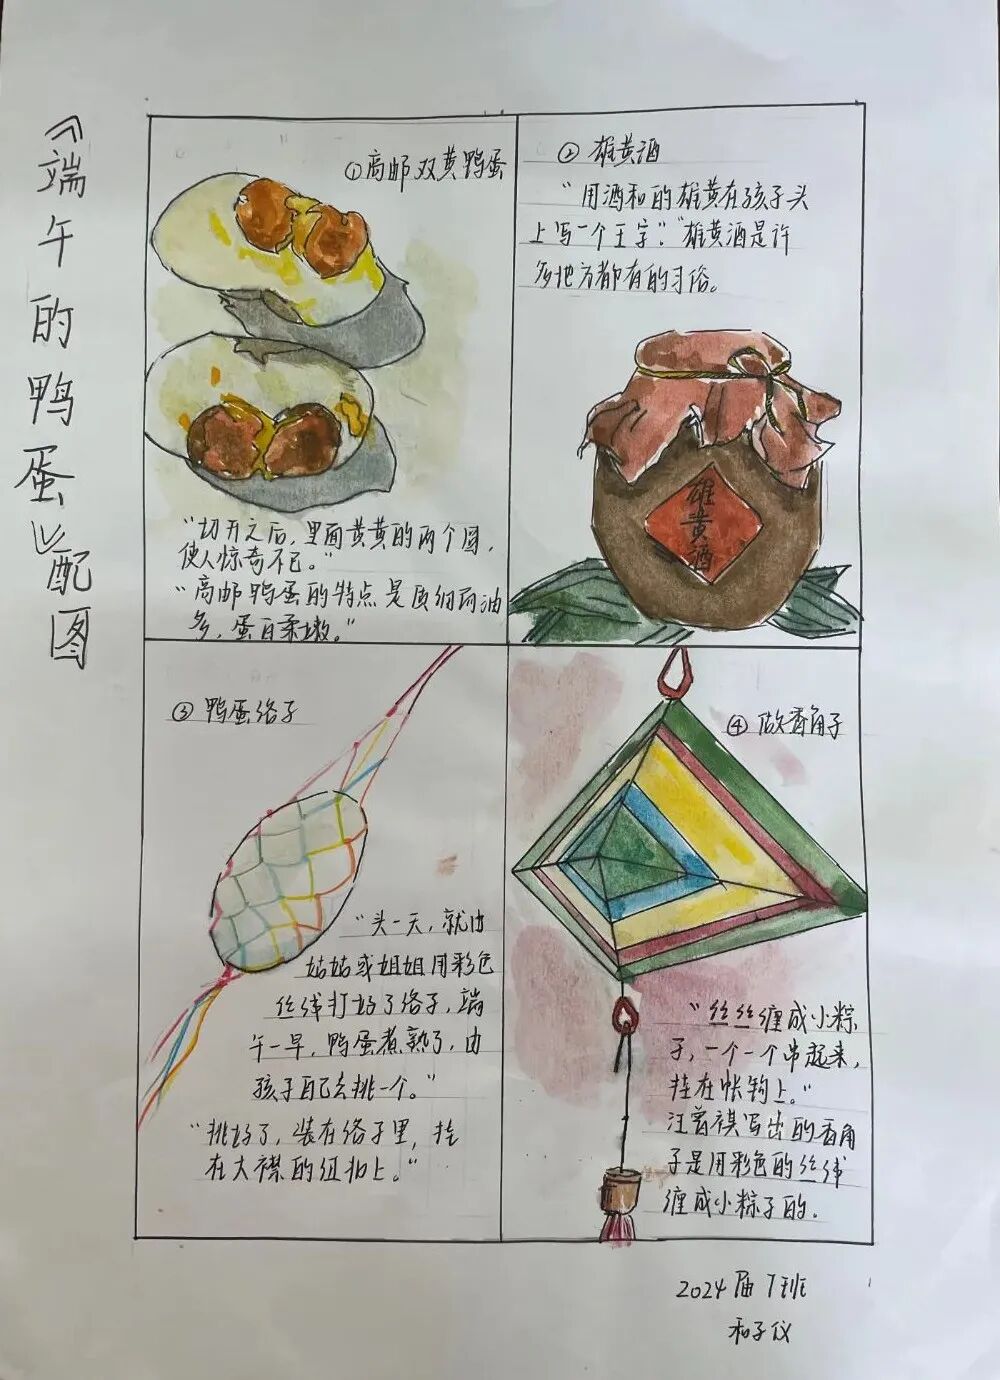 《端午的鸭蛋》配图
①高邮双黄鸭蛋
“切开之后,里面黄黄的两个圆,
使人惊奇不已。”
“高邮鸭蛋的特点是质细而油
多,蛋白柔嫩。”
②雄黄酒
“用酒和的雄黄在孩子头
上写一个王字”“雄黄酒是许
多地方都有的习俗。
雄黄酒
③鸭蛋络子
“头一天,就由
姑姑或姐姐用彩色
丝线打好了络子,端
午一早,鸭蛋煮熟了,由
孩子自己去挑一个。”
“挑好了,装在络子里,挂
在大襟的纽扣上。”
④做香角子
“丝丝缠成小粽
子,一个一个串起来,
挂在帐钩上。”
汪曾祺写出的香角
子是用彩色的丝线
缠成小粽子的.
2024届7班
和子仪